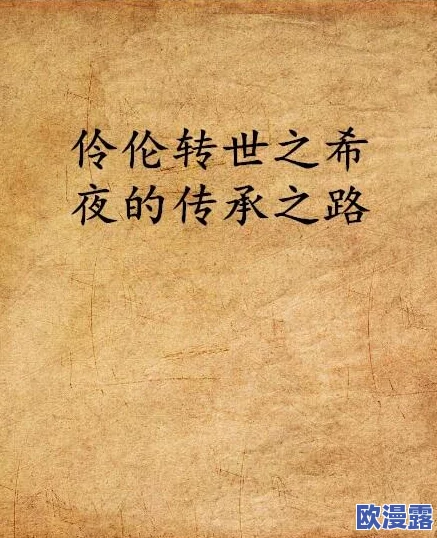 伶伦转世之希
夜的传承之路
欧漫露